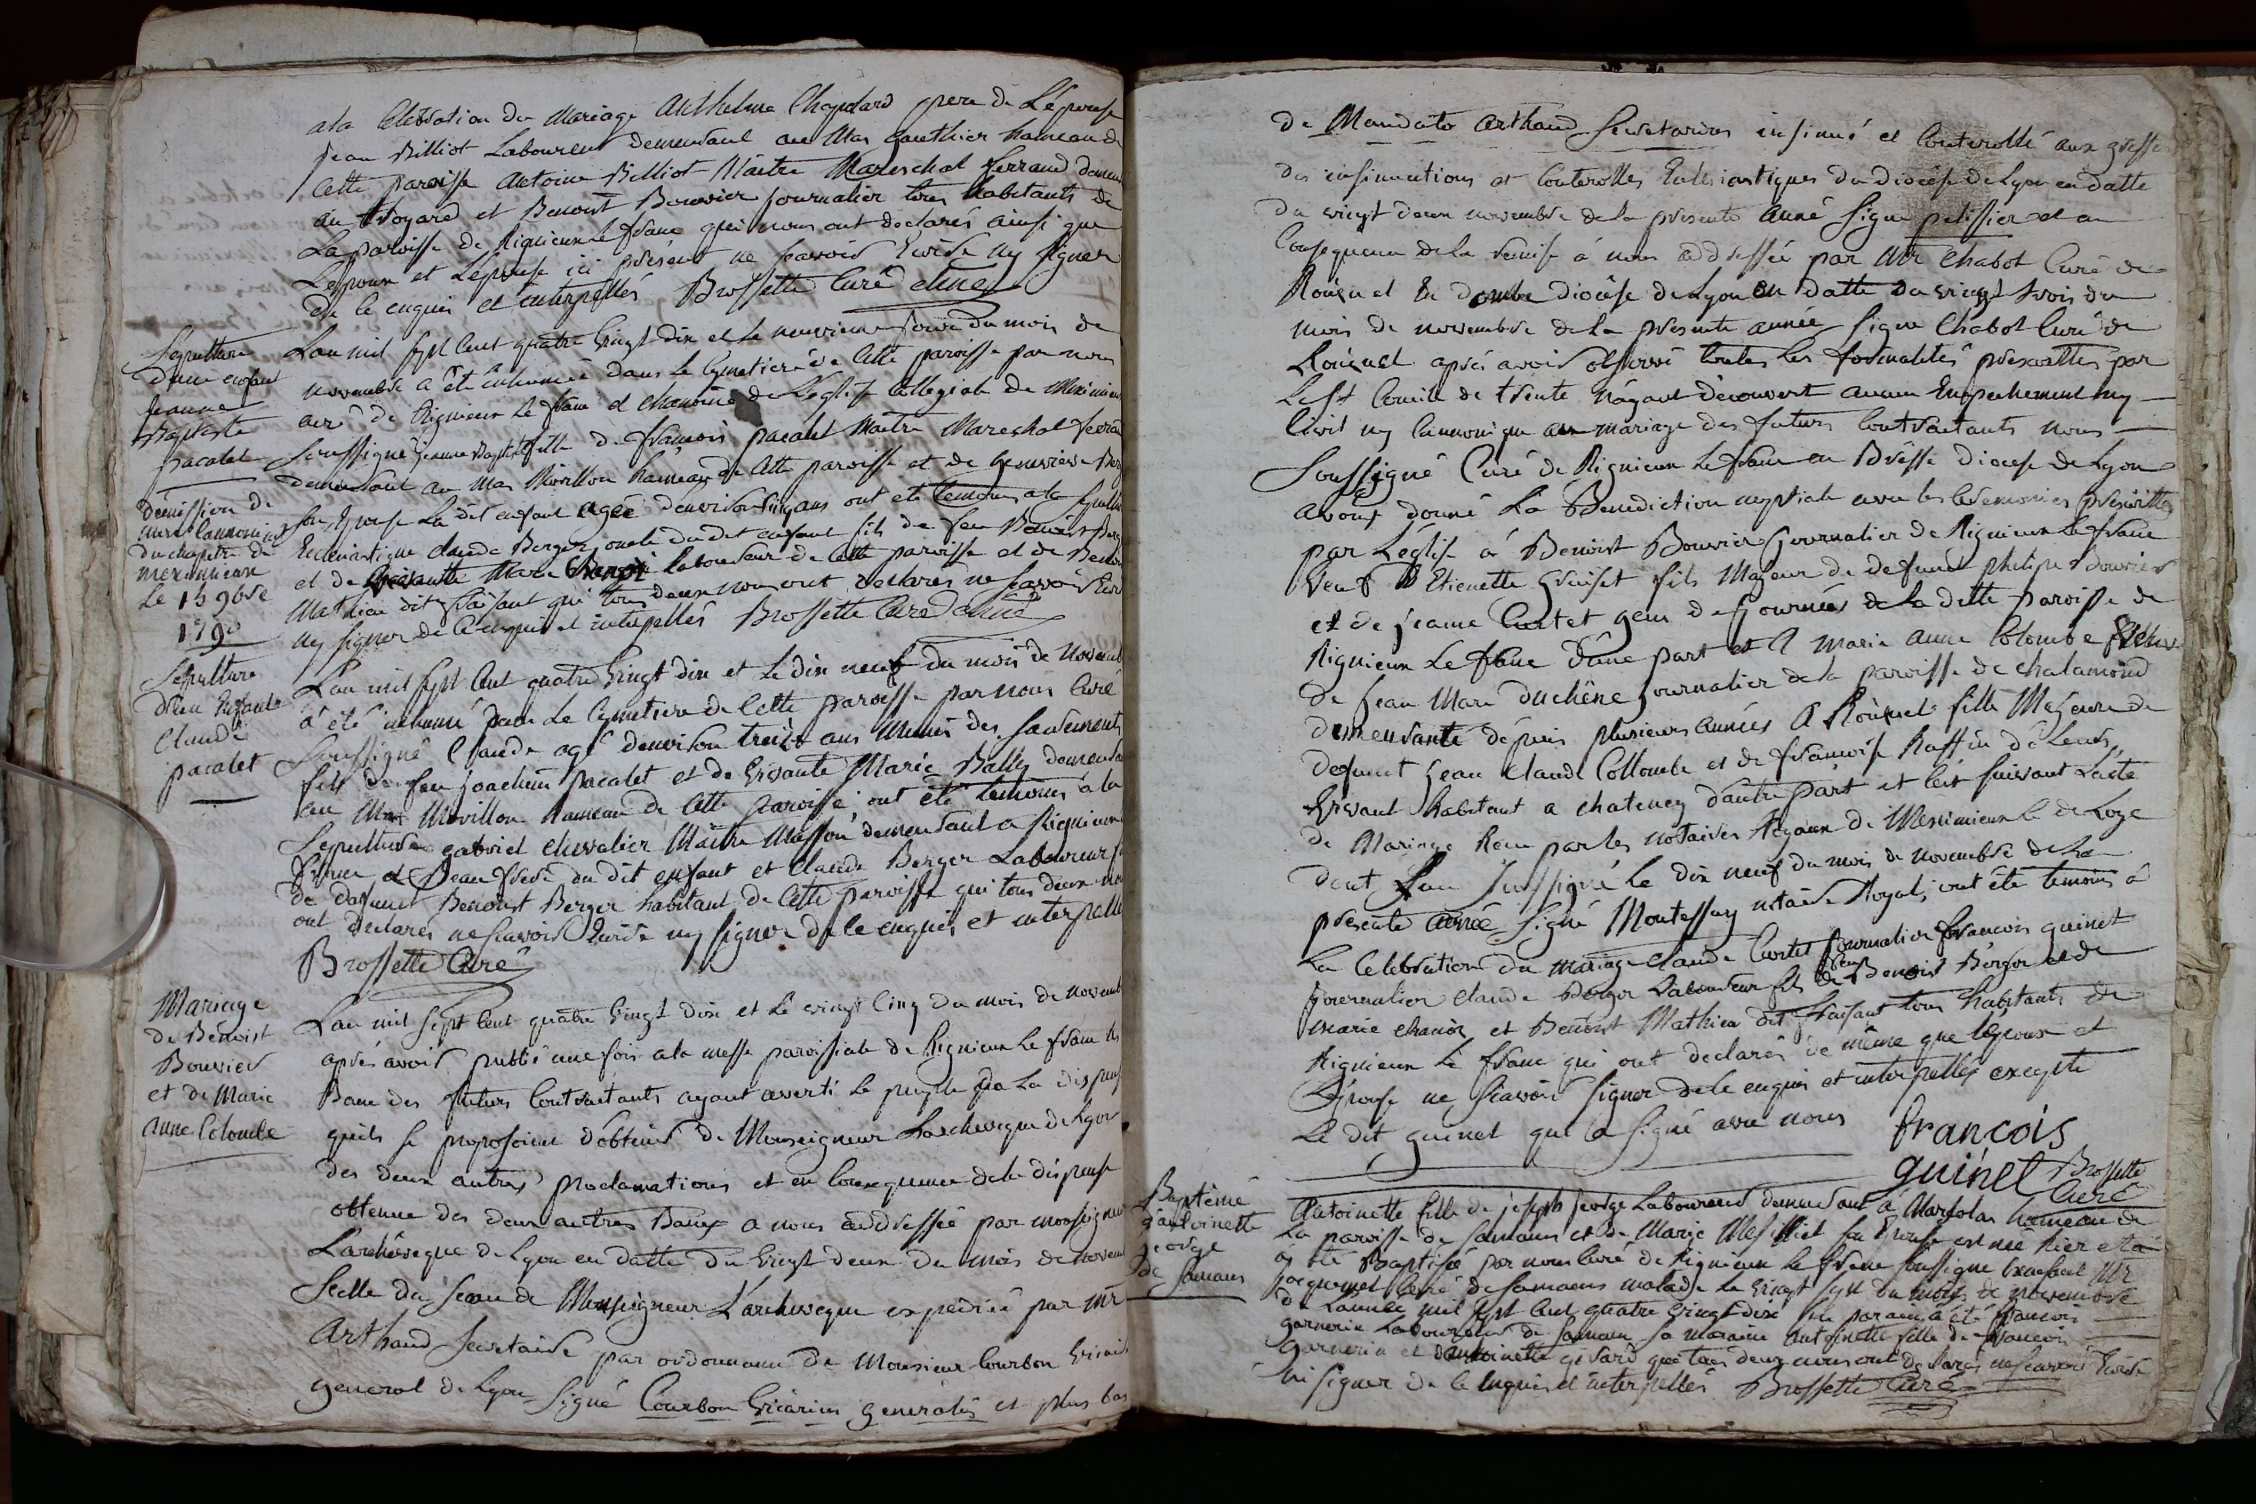 a la Celebration du Mariage Anthelme Chapelard pere de L'épouse
Jean Billiot Laboureur demeurant au Mas Gauthier hameau de
Cette paroisse Antoine Billiot Maitre Mareschal ferrand
au et Benoist Bouvier journalier tous habitants de
La paroisse de Rignieux le franc qui nous ont declarés ainsi que
L'époux et L'épouse ici présent ne scavoir Ecrire ny signer
de ce enquis et interpellés Brossette Curé
Sepulture
d'une enfant
Jeanne
Baptiste
pacalet
L'an mil sept Cent quatre Vingt dix et le neuvieme jour du mois de
novembre a été inhumée dans le Cymetiere de Cette paroisse par nous
curé de Rignieux Le franc et chanoine de L'église Collegiale de Meximieux
soussigné Jeanne Baptiste fille de francois pacalet Maitre Mareschal
demeurant au Mas Mivillon hameau de Cette paroisse et de Genevieve
son Epouse La dit enfant agée d'environ ans ont été temoins a la
Ecclesiastique Claude Berger oncle du dit enfant fils de feu Benoist
et de Marie Laboureur de Cette paroisse et de Benoist
Mathieu dit faisant qui tous deux nous ont declarés ne scavoir
ny signer de Ce enquis et interpellés Brossette Curé
démission de
mon Cannonicat
du chapitre de
meximieux
Le 15 9bre
1790
Sepulture
d'un Enfant
Claude
pacalet
L'an mil sept Cent quatre Vingt dix et Le dix neuf du mois de
a été inhumé dans Le Cymetiere de Cette paroisse par nous Curé
Soussigné Claude agé d'environ treize ans Munis des Sacrements
fils de feu joachim pacalet et de vivante Marie Bally
au Mas Mivillon hameau de Cette paroisse ont été temoins à la
Sepulture gabriel chevalier Maitre Masson demeurant a Rignieux
franc et Beau frere du dit enfant et Claude Berger Laboureur
de defunct Benoist Berger habitant de Cette paroisse qui tous deux
ont declarés ne scavoir Ecrire ny signer de Ce enquis et interpellés
Brossette Curé
Mariage
de Benoist
Bouvier
et de Marie
Anne Colombe
L'an mil sept Cent quatre Vingt dix et Le vingt Cinq du mois de
aprés avoir publié une fois a la messe paroissiale de Rignieux Le franc
Banc des futurs Contractants ayant averti Le peuple de La
qu'ils se proposoient d'obtenir de Monseigneur L'archeveque de Lyon
des deux autres proclamations et en Consequence de la dispense
obtenue des deux autres Bans a nous addressée par monseigneur
L'archéveque de Lyon en datte du Vingt deux du mois de
Scellé du Sceau de Monseigneur L'archeveque expediée par Mr
Arthaud Secretaire par ordonnance de Monsieur Courbon
general de Lyon Signé Courbon Vicarius generalis et plus bas
de Mandato Arthaud Secretarius insinué et Conterollé aux greffe
des insinuations et Conterolles Ecclesiastiques du Diocése de Lyon en datte
du vingt deux novembre de la presente année Signé pelissier et en
Consequence de la remise à nous addressée par Mr Chabot Curé de
Roüguel En dombe diocése de Lyon en datte du vingt trois du
mois de novembre de la presente année Signé Chabot Curé de
aprés avoir observé toutes les formalités prescrittes par
Le St Concile de trente N'ayant découvert aucun Empechement ny
Civil ny Cannonique au mariage des futurs Contractants nous
Soussigné Curé de Rignieux Le franc en Bresse diocése de Lyon
avons donné La Benediction nuptiale avec les Ceremonies prescrittes
par L'église à Benoist Bouvier journalier de Rignieux Le franc
Veuf D'Etienette fils Majeur de defunct philipe Bouvier
et de jeanne Curtet gens de journées de la ditte paroisse de
Rignieux Le franc d'une part et A Marie Anne Colombe
de Jean Marc duchêne journalier de la paroisse de chalamond
demeurante depuis plusieurs années à fille Majeure de
defunct Jean Claude Collombe et de francoise Raffin de Leurs
Vivant habitant a chateney d'autre part et Ceci suivant L'acte
de Mariage Recu par les notaires Royaux de Meximieux le de Loge
dont L'un Soussigné Le dix neuf du mois de novembre de La
presente année Signé Montessuy notaire Royal, ont été temoins à
La Celebration du mariage Claude Curtet journalier francois guinet
journalier Claude Berger Laboureur fils de feu Benoist Berger et de
marie et Benoist Mathieu dit faisant tous habitants de
Rignieux Le franc qui ont declarés de même que L'époux et
L'épouse ne scavoir signer de Ce enquis et interpellés excepté
Le dit guinet qui a signé avec nous
francois
guinet Brossette
Curé
Baptême
d'antoinette
george
de Samans
Antoinette fille de joseph george Laboureur demeurant à Marfolan hameau de
La paroisse de Samans et de Marie Mesilliet son Epouse est née hier et a
été Baptisée par nous Curé de Rignieux Le franc soussigné Mr
jacquemet Curé de Samans malade Le Vingt sept du mois de novembre
de L'année mil sept Cent quatre Vingt dix son parain a été francois
garnerin Laboureur de Samans Sa maraine Antoinette fille de francois
garnerin et d'antoinette girard que tous deux nous ont declarés ne scavoir Ecrire
ni signer de Ce enquis et interpellés Brossette Curé